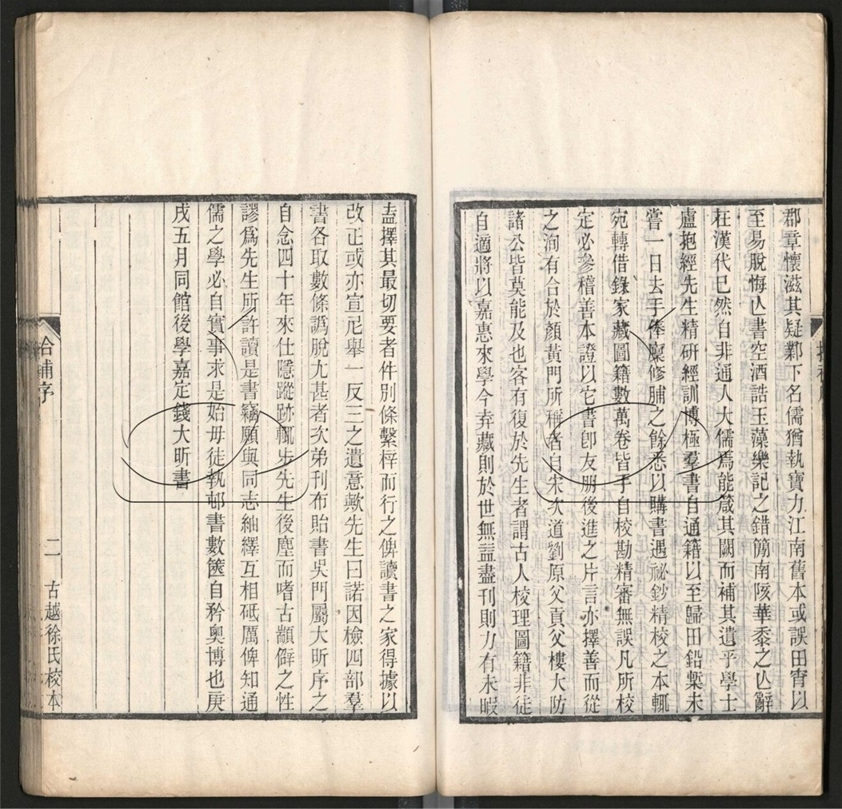 郡章懷滋其疑鄴下名儒猶執寶力江南舊本或誤田宵以
至易脫悔亾書空酒誥玉藻樂記之錯簡南陔華黍之亾辭
在漢代已然自非通人大儒焉能箴其闕而補其遺乎學士
盧抱經先生精研經訓博極羣書自通籍以至歸田鉛槧未
嘗一日去手俸廩修脯之餘悉以購書遇祕鈔精校之本輒
宛轉借錄家藏圖籍數萬卷皆手自校勘精審無誤凡所校
定必參稽善本證以它書卽友朋後進之片言亦擇善而從
之洵有合於顏黃門所稱者自宋次道劉原父貢父樓大防
諸公皆莫能及也客有復於先生者謂古人校理圖籍非徒
自適將以嘉惠來學今弆藏則於世無益盡刊則力有未暇
盍擇其最切要者件別條繫梓而行之俾讀書之家得據以
改正或亦宣尼舉一反三之遺意歟先生曰諾因檢四部羣
書各取數條譌脫尤甚者次弟刊布貽書吳門屬大昕序之
自念四十年來仕隱蹤跡輒步先生後塵而嗜古顓僻之性
謬爲先生所許讀是書竊願與同志紬繹互相砥厲俾知通
儒之學必自實事求是始毋徒執邨書數篋自矜奧博也庚
戌五月同館後學嘉定錢大昕書
拾補序
二
古越徐氏校本